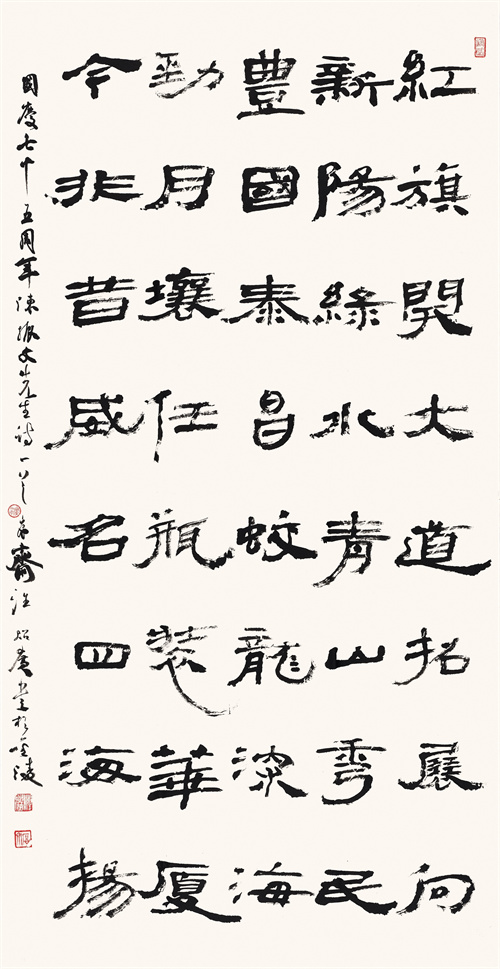 紅旗開大道拓展向
新陽綠水青山秀民
豐國泰昌蛟龍深海
勁月壤任瓶裝華厦
今非昔威名四海揚
國慶七十五周年陳振文先生詩一首 齋 書於金陵